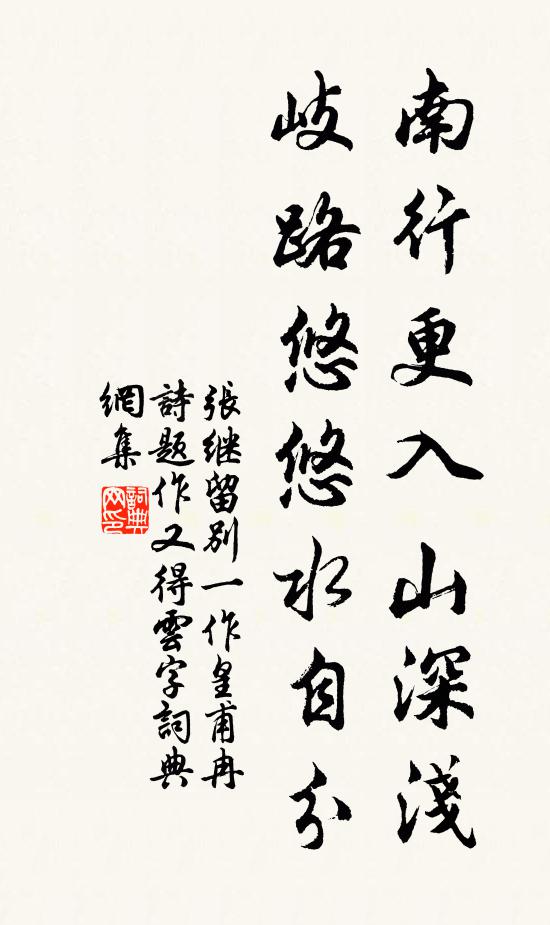 南行更入山深淺
岐路悠悠水自分
張继留別一作皇甫冉
詩題作又得雲字詞典
網集
詞典
网印